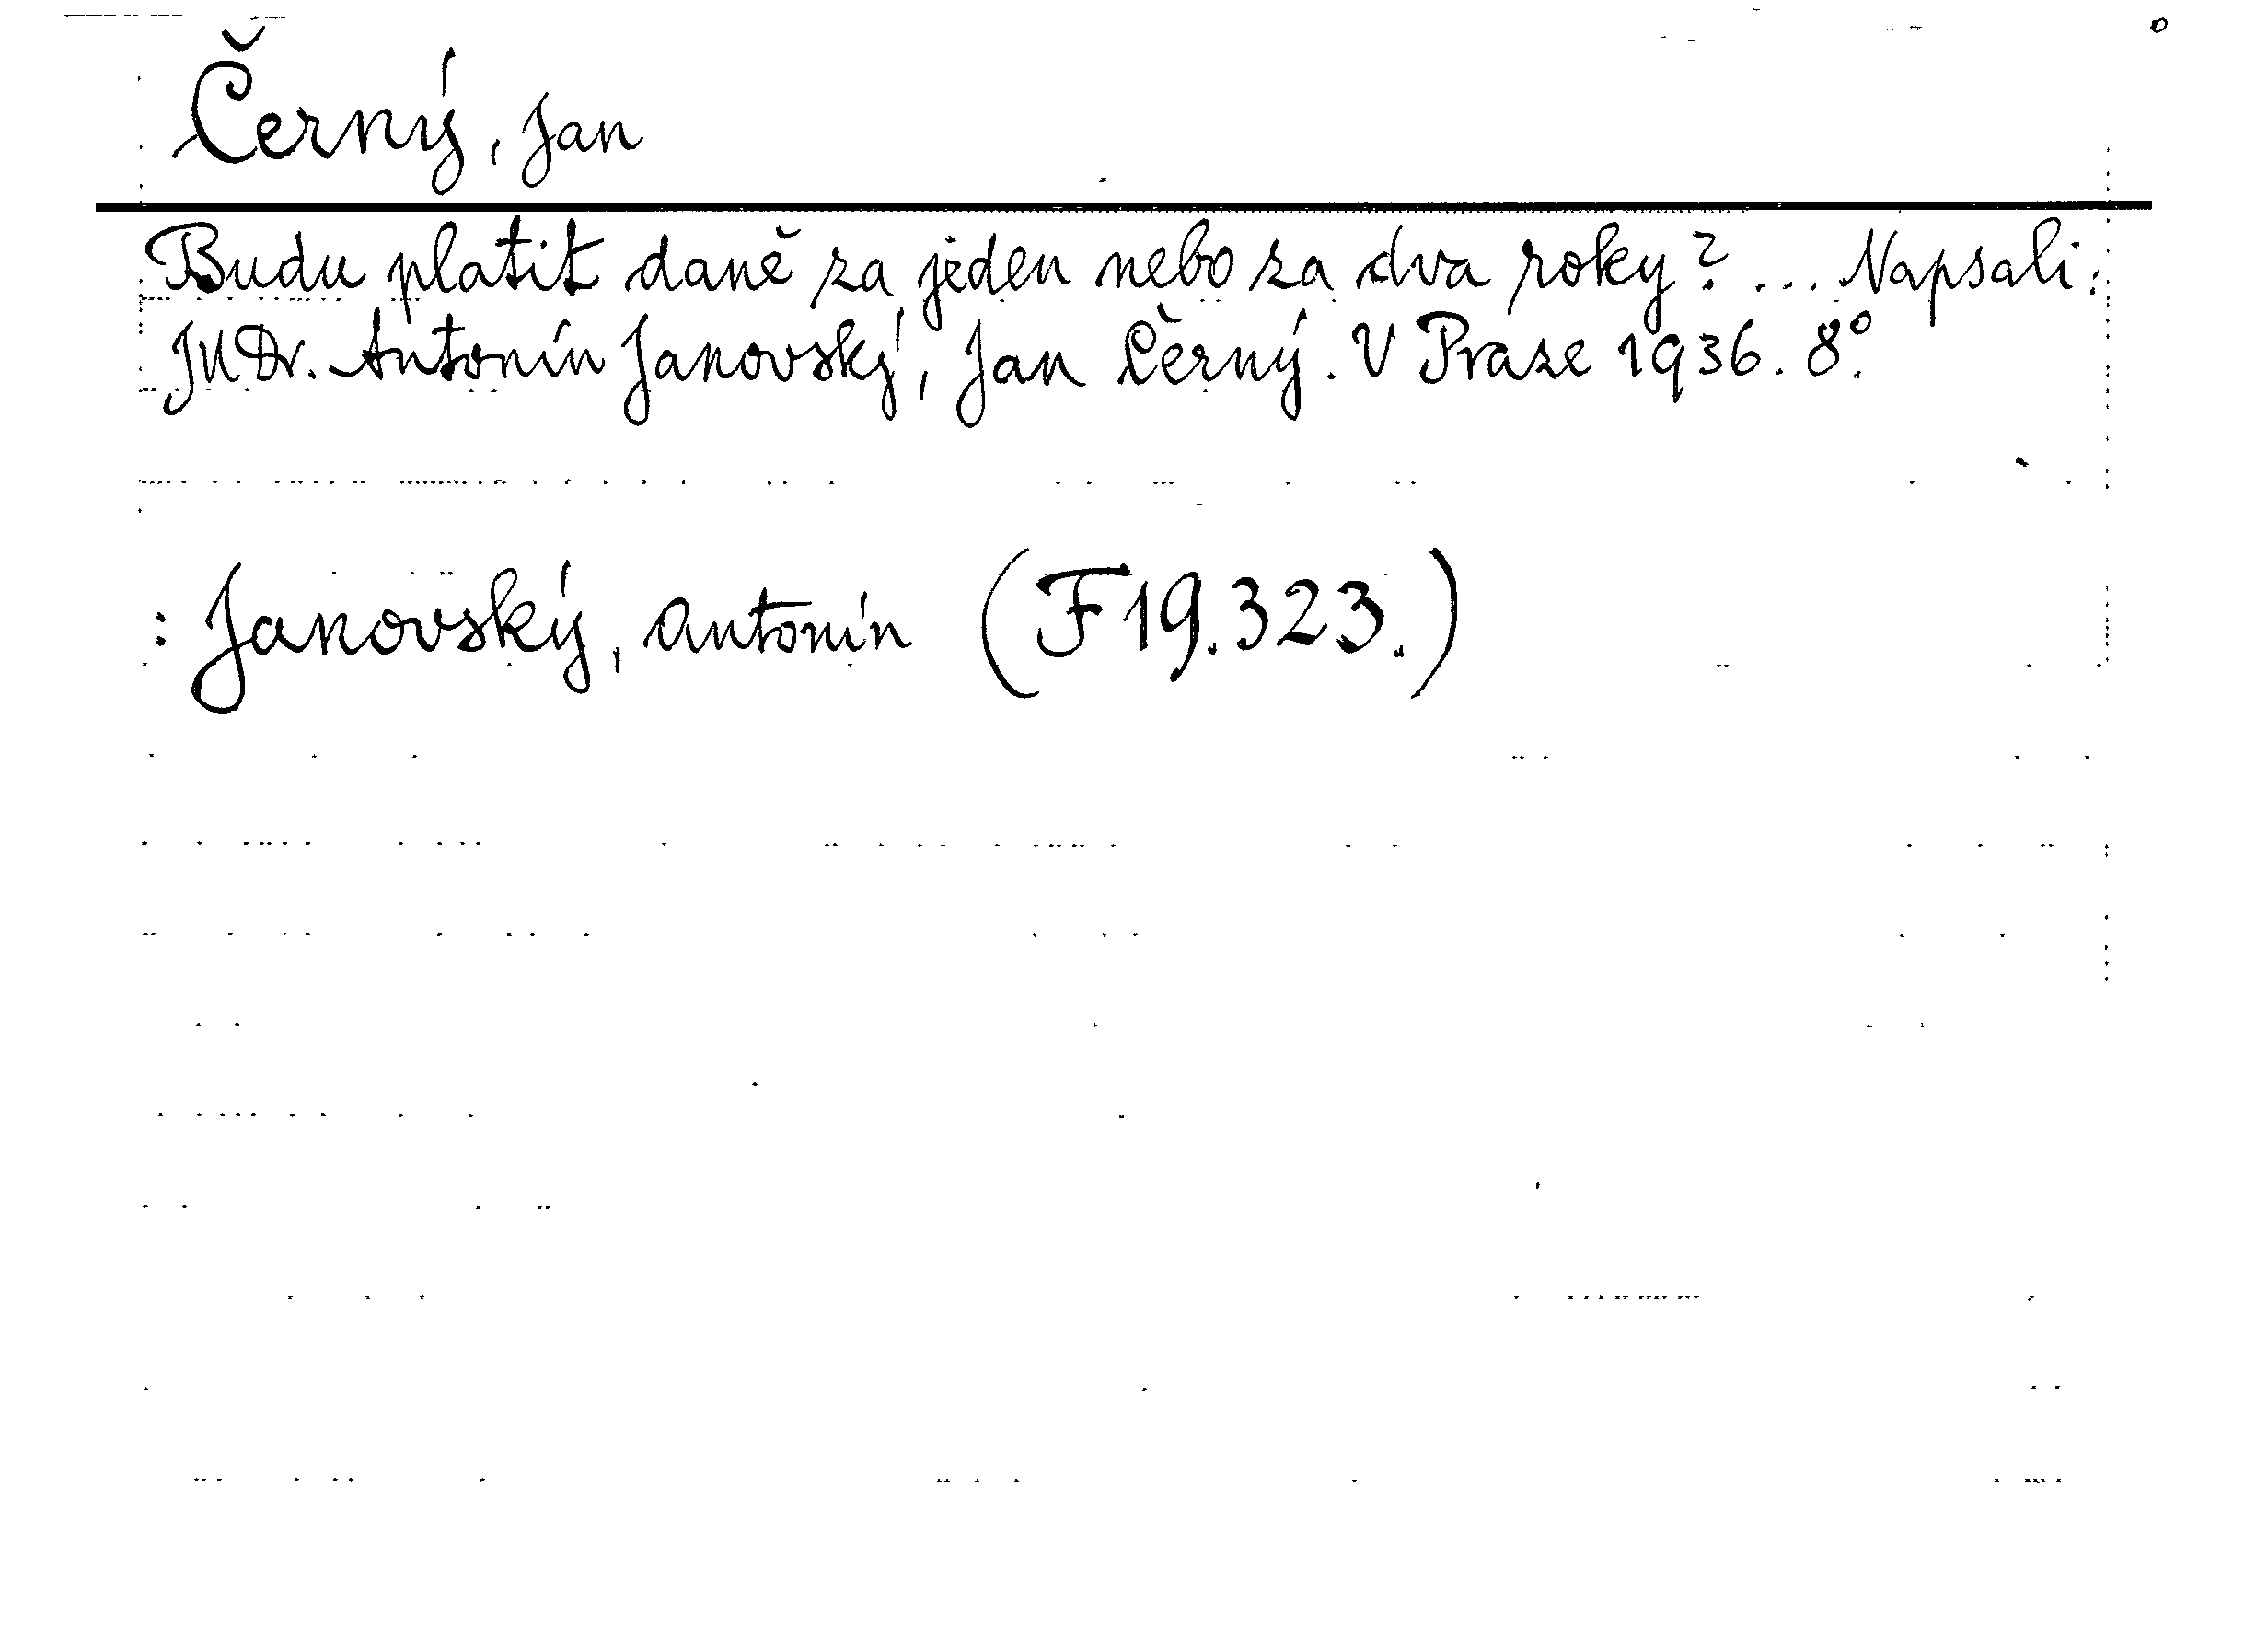 Černý, Jan
Budu platit daně za jeden nebo za dva roky? ... Napsali:
JUDr. Antonín Janovský, Jan Černý. V Praze 1936. 8°.
: Janovský, Antonín (F19.323.)